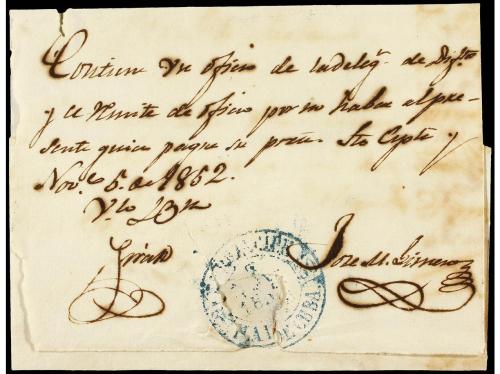 Contiene un oficio de la deleg. de Distto
y se remite de oficio por no haber al pre-
sente quien pague su porte. Sto Espte y
Nove 5 de 1852.
Vto Bn
Jose M. Gimenez
PRINCIPE
5
CUBA